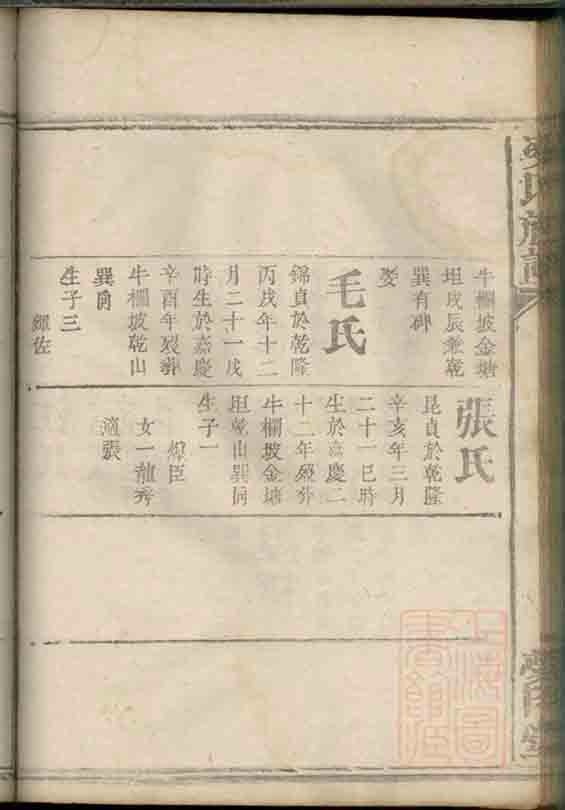 氏族譜
牛欄坡金塘
坦戌辰兼乾
巽有碑
娶
毛氏
錦貞於乾隆
丙戌年十二
月二十一戌
時生於嘉慶
辛酉年歿葬
牛欄坡乾山
巽向
生子三
輝佐
張氏
昆貞於乾隆
辛亥年三月
二十一巳時
生於嘉慶二
十二年歿葬
牛欄坡金塘
坦乾山巽向
生子一
臣
女一龍秀
適張
上海圖
書館藏